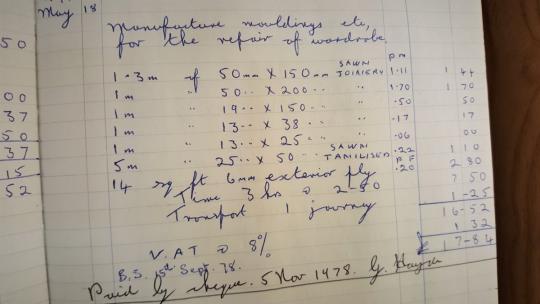 May 18
Manufacture mouldings etc,
for the repair of wardrobe.
pm
1·3m of 50mm x 150mm SAWN JOINERY 1·11 1 44
1m " 50 " x 200 " " 1·70 1 70
1m " 19 " x 150 " " ·50 50
1m " 13 " x 38 " " ·17 17
1m " 13 " x 25 " " ·06 06
5m " 25 " x 50 " SAWN TANALISED ·22 1 10
14 sq ft 6mm exterior ply P F ·20 2 80
Time 3 hrs @ 2-50 7 50
Transport 1 journey 1-25
16-52
V.A.T @ 8% 1 32
£ 17-84
B.S. Sept. 78.
Paid by cheque. 5 Nov 1978. G.
50
00
37
50
37
15
52